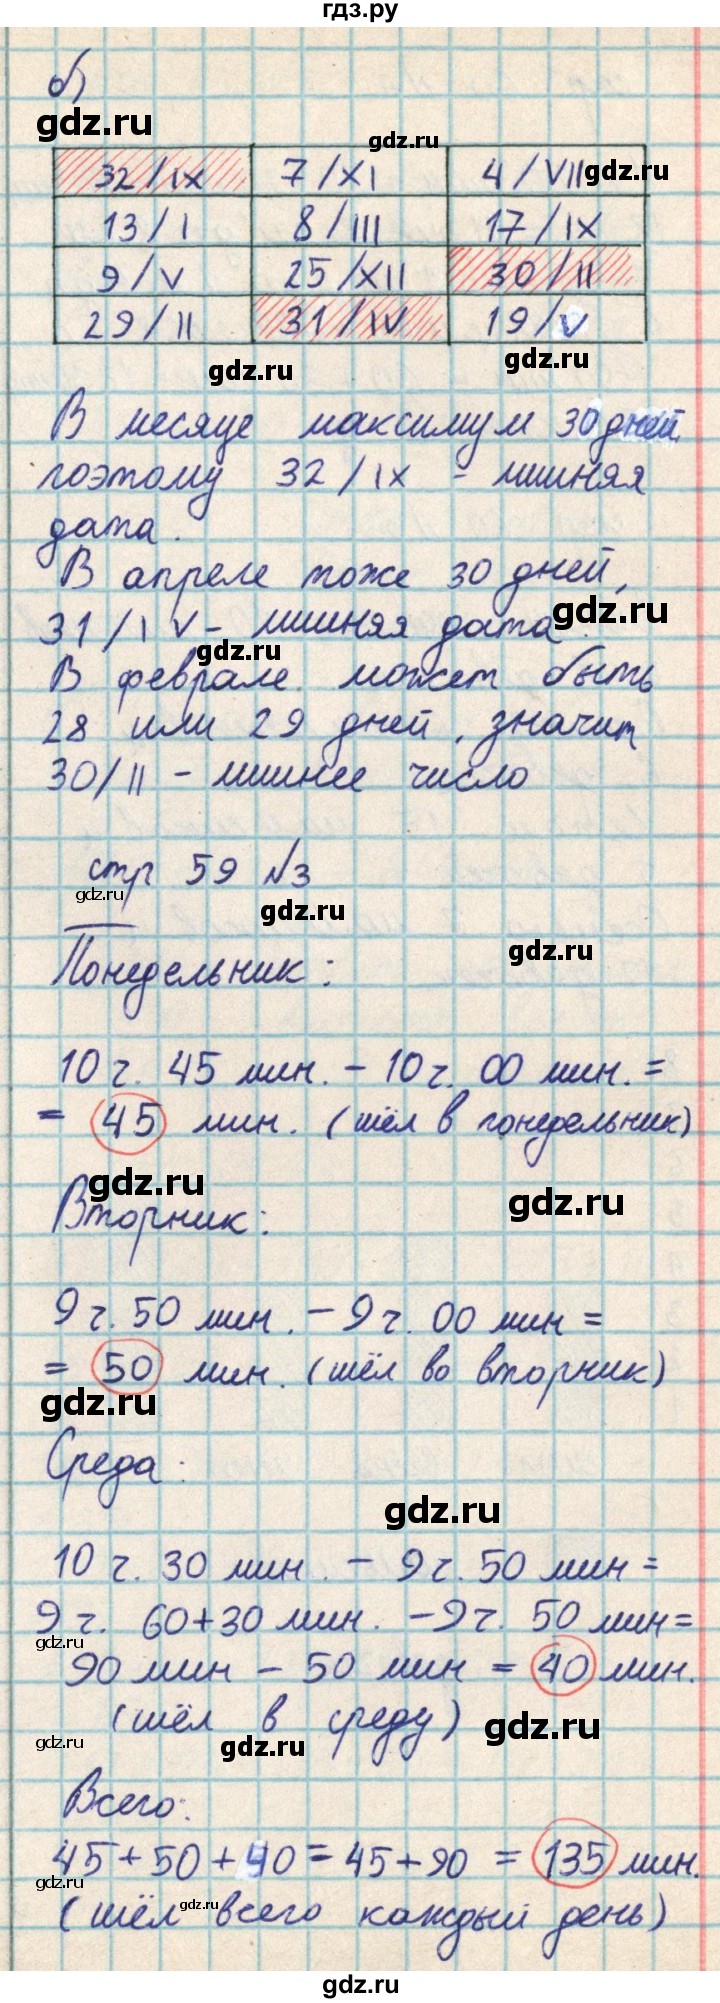 гдз.ру
б)
gdz.ru
gdz.ru
32/IX 7/XI 4/VII
gdz.ru
13/I 8/III 17/IX
9/V 25/XII 30/II
29/II 31/IV 19/V
gdz.ru
gdz.ru
В месяце максимум 30 дней
поэтому 32/IX - лишняя
дата.
В апреле тоже 30 дней,
gdz.ru
31/IV - лишняя дата.
gdz.ru
В феврале может быть
28 или 29 дней, значит
30/II - лишнее число
стр 59 №3
gdz.ru
gdz.ru
gdz.ru
Понедельник:
10 ч. 45 мин. - 10 ч. 00 мин. =
= 45 мин. (шёл в понедельник)
gdz.ru
gdz.ru
Вторник:
9 ч. 50 мин. - 9 ч. 00 мин =
= 50 мин. (шёл во вторник)
gdz.ru
Среда:
gdz.ru
10 ч. 30 мин. - 9 ч. 50 мин =
9 ч. 60+30 мин. - 9 ч. 50 мин=
gdz.ru
90 мин - 50 мин = 40 мин.
(шёл в среду)
gdz.ru
gdz.ru
gdz.ru
Всего:
45+50+40=45+90 = 135 мин.
gdz.ru
gdz.ru
(шёл всего каждый день)
gdz.ru
gdz.ru